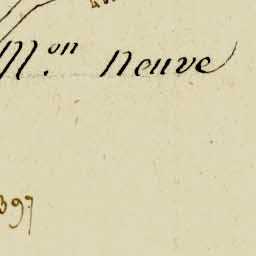 M.on Neuve
397